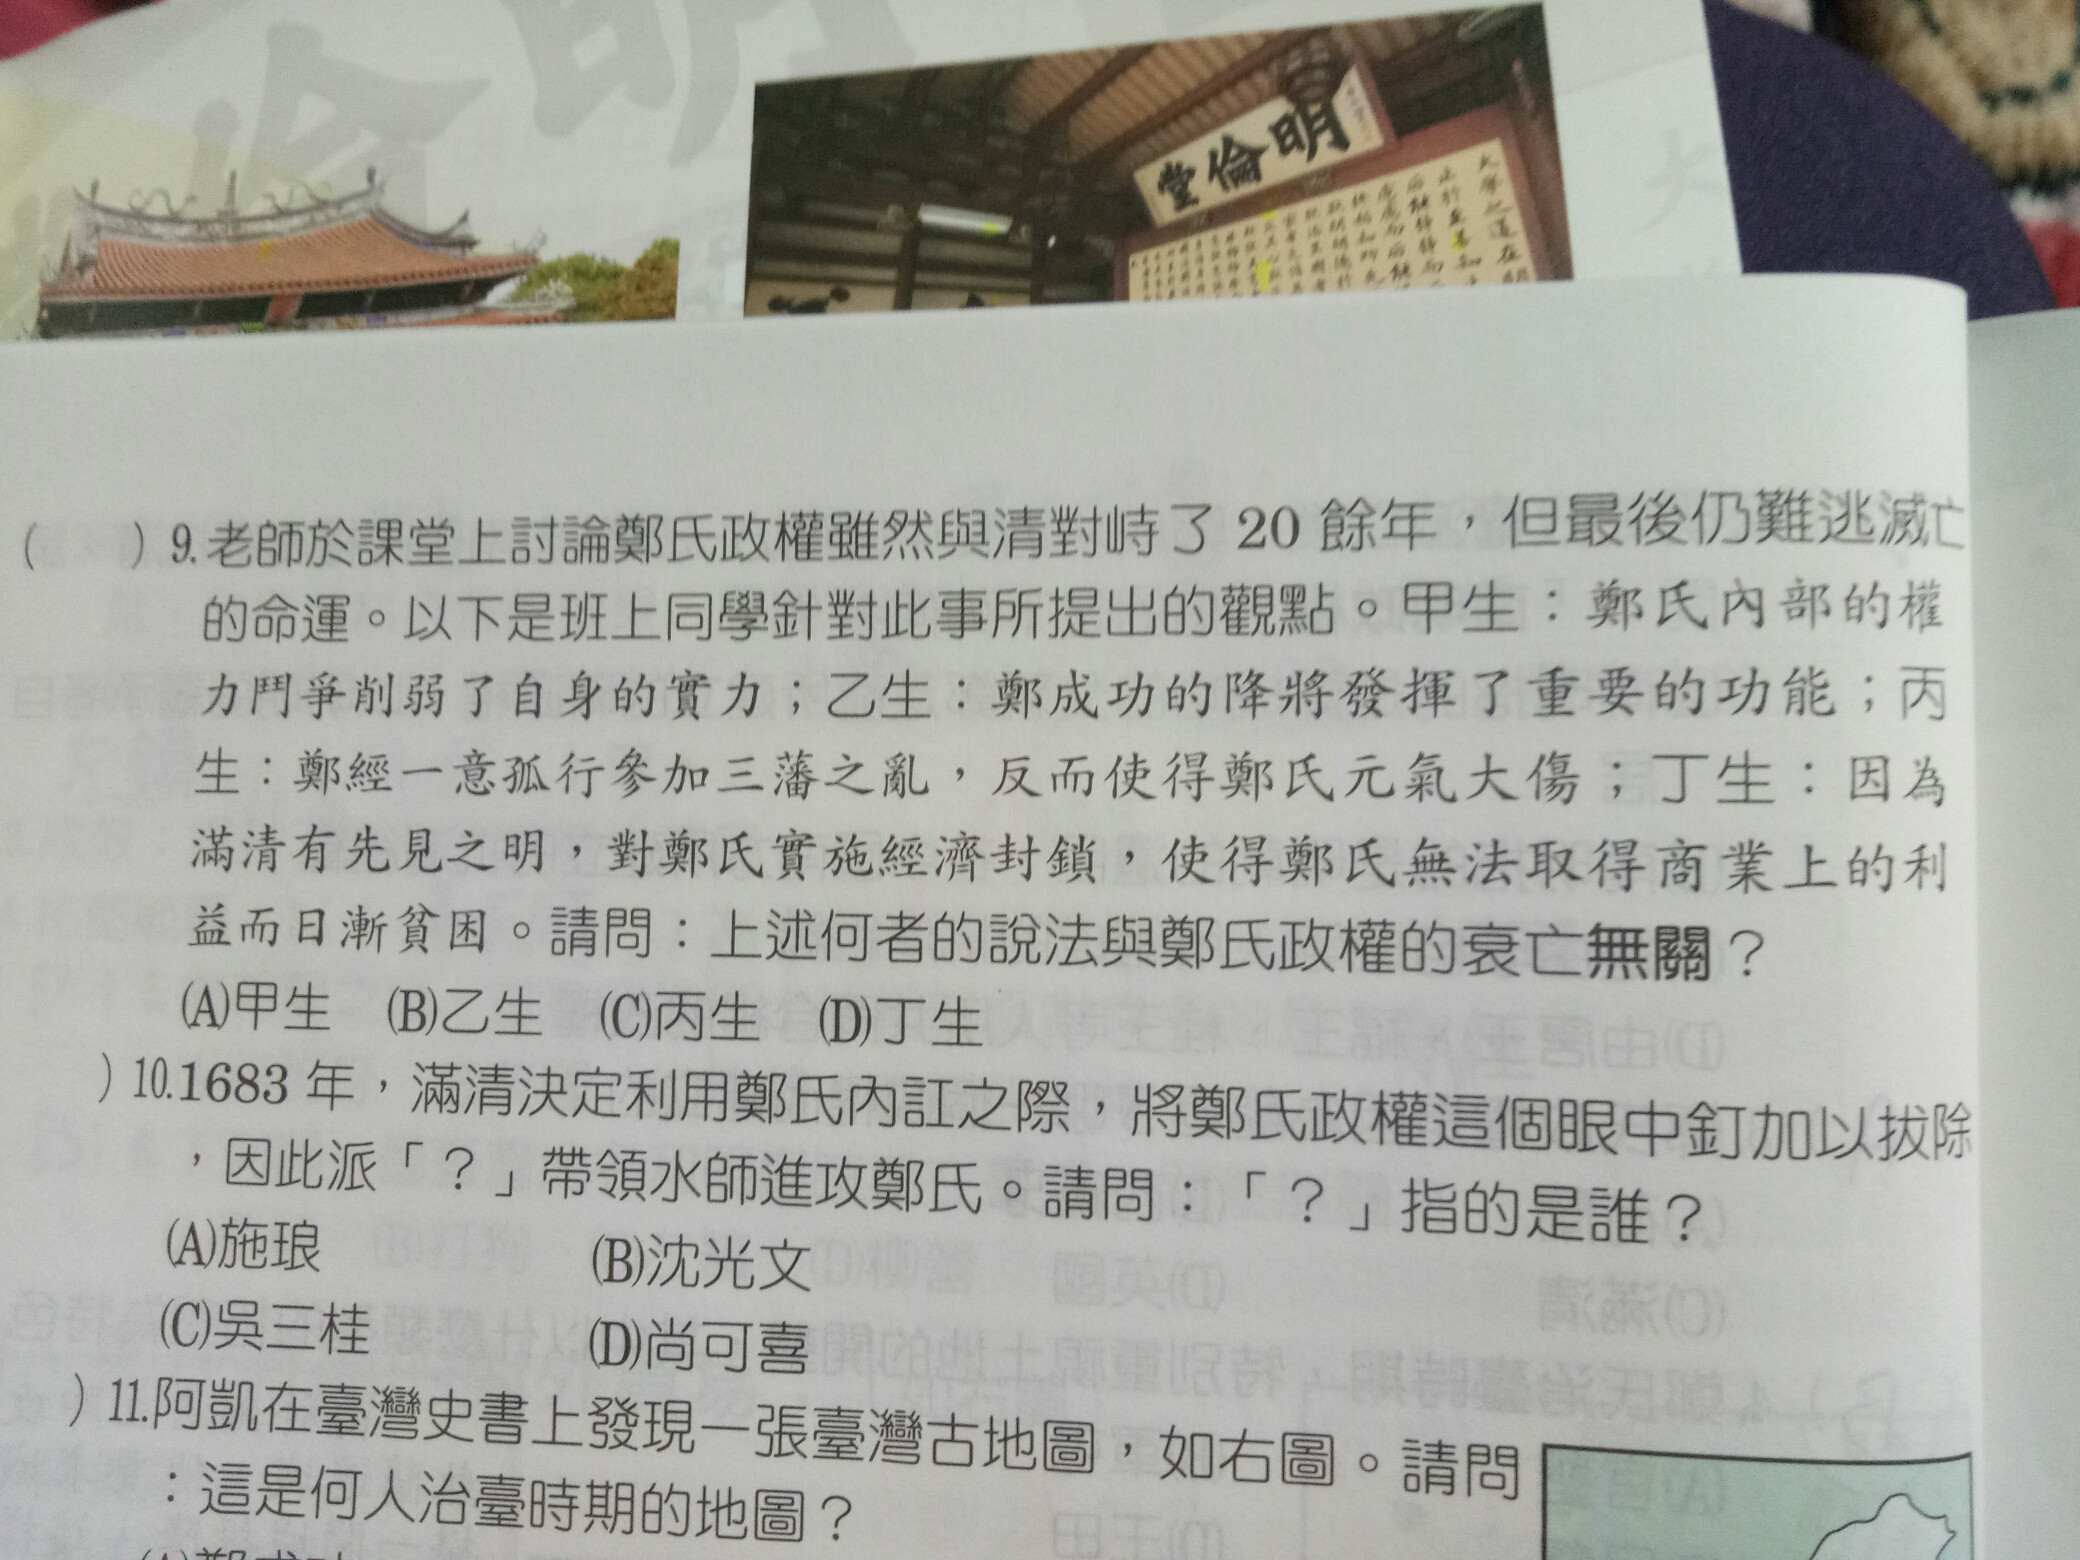 明倫堂
( )9.老師於課堂上討論鄭氏政權雖然與清對峙了 20 餘年,但最後仍難逃滅亡
的命運。以下是班上同學針對此事所提出的觀點。甲生:鄭氏內部的權
力鬥爭削弱了自身的實力;乙生:鄭成功的降將發揮了重要的功能;丙
生:鄭經一意孤行參加三藩之亂,反而使得鄭氏元氣大傷;丁生:因為
滿清有先見之明,對鄭氏實施經濟封鎖,使得鄭氏無法取得商業上的利
益而日漸貧困。請問:上述何者的說法與鄭氏政權的衰亡無關?
(A)甲生 (B)乙生 (C)丙生 (D)丁生
)10.1683 年,滿清決定利用鄭氏內訌之際,將鄭氏政權這個眼中釘加以拔除
,因此派「?」帶領水師進攻鄭氏。請問:「?」指的是誰?
(A)施琅 (B)沈光文
(C)吳三桂 (D)尚可喜
)11.阿凱在臺灣史書上發現一張臺灣古地圖,如右圖。請問
:這是何人治臺時期的地圖?